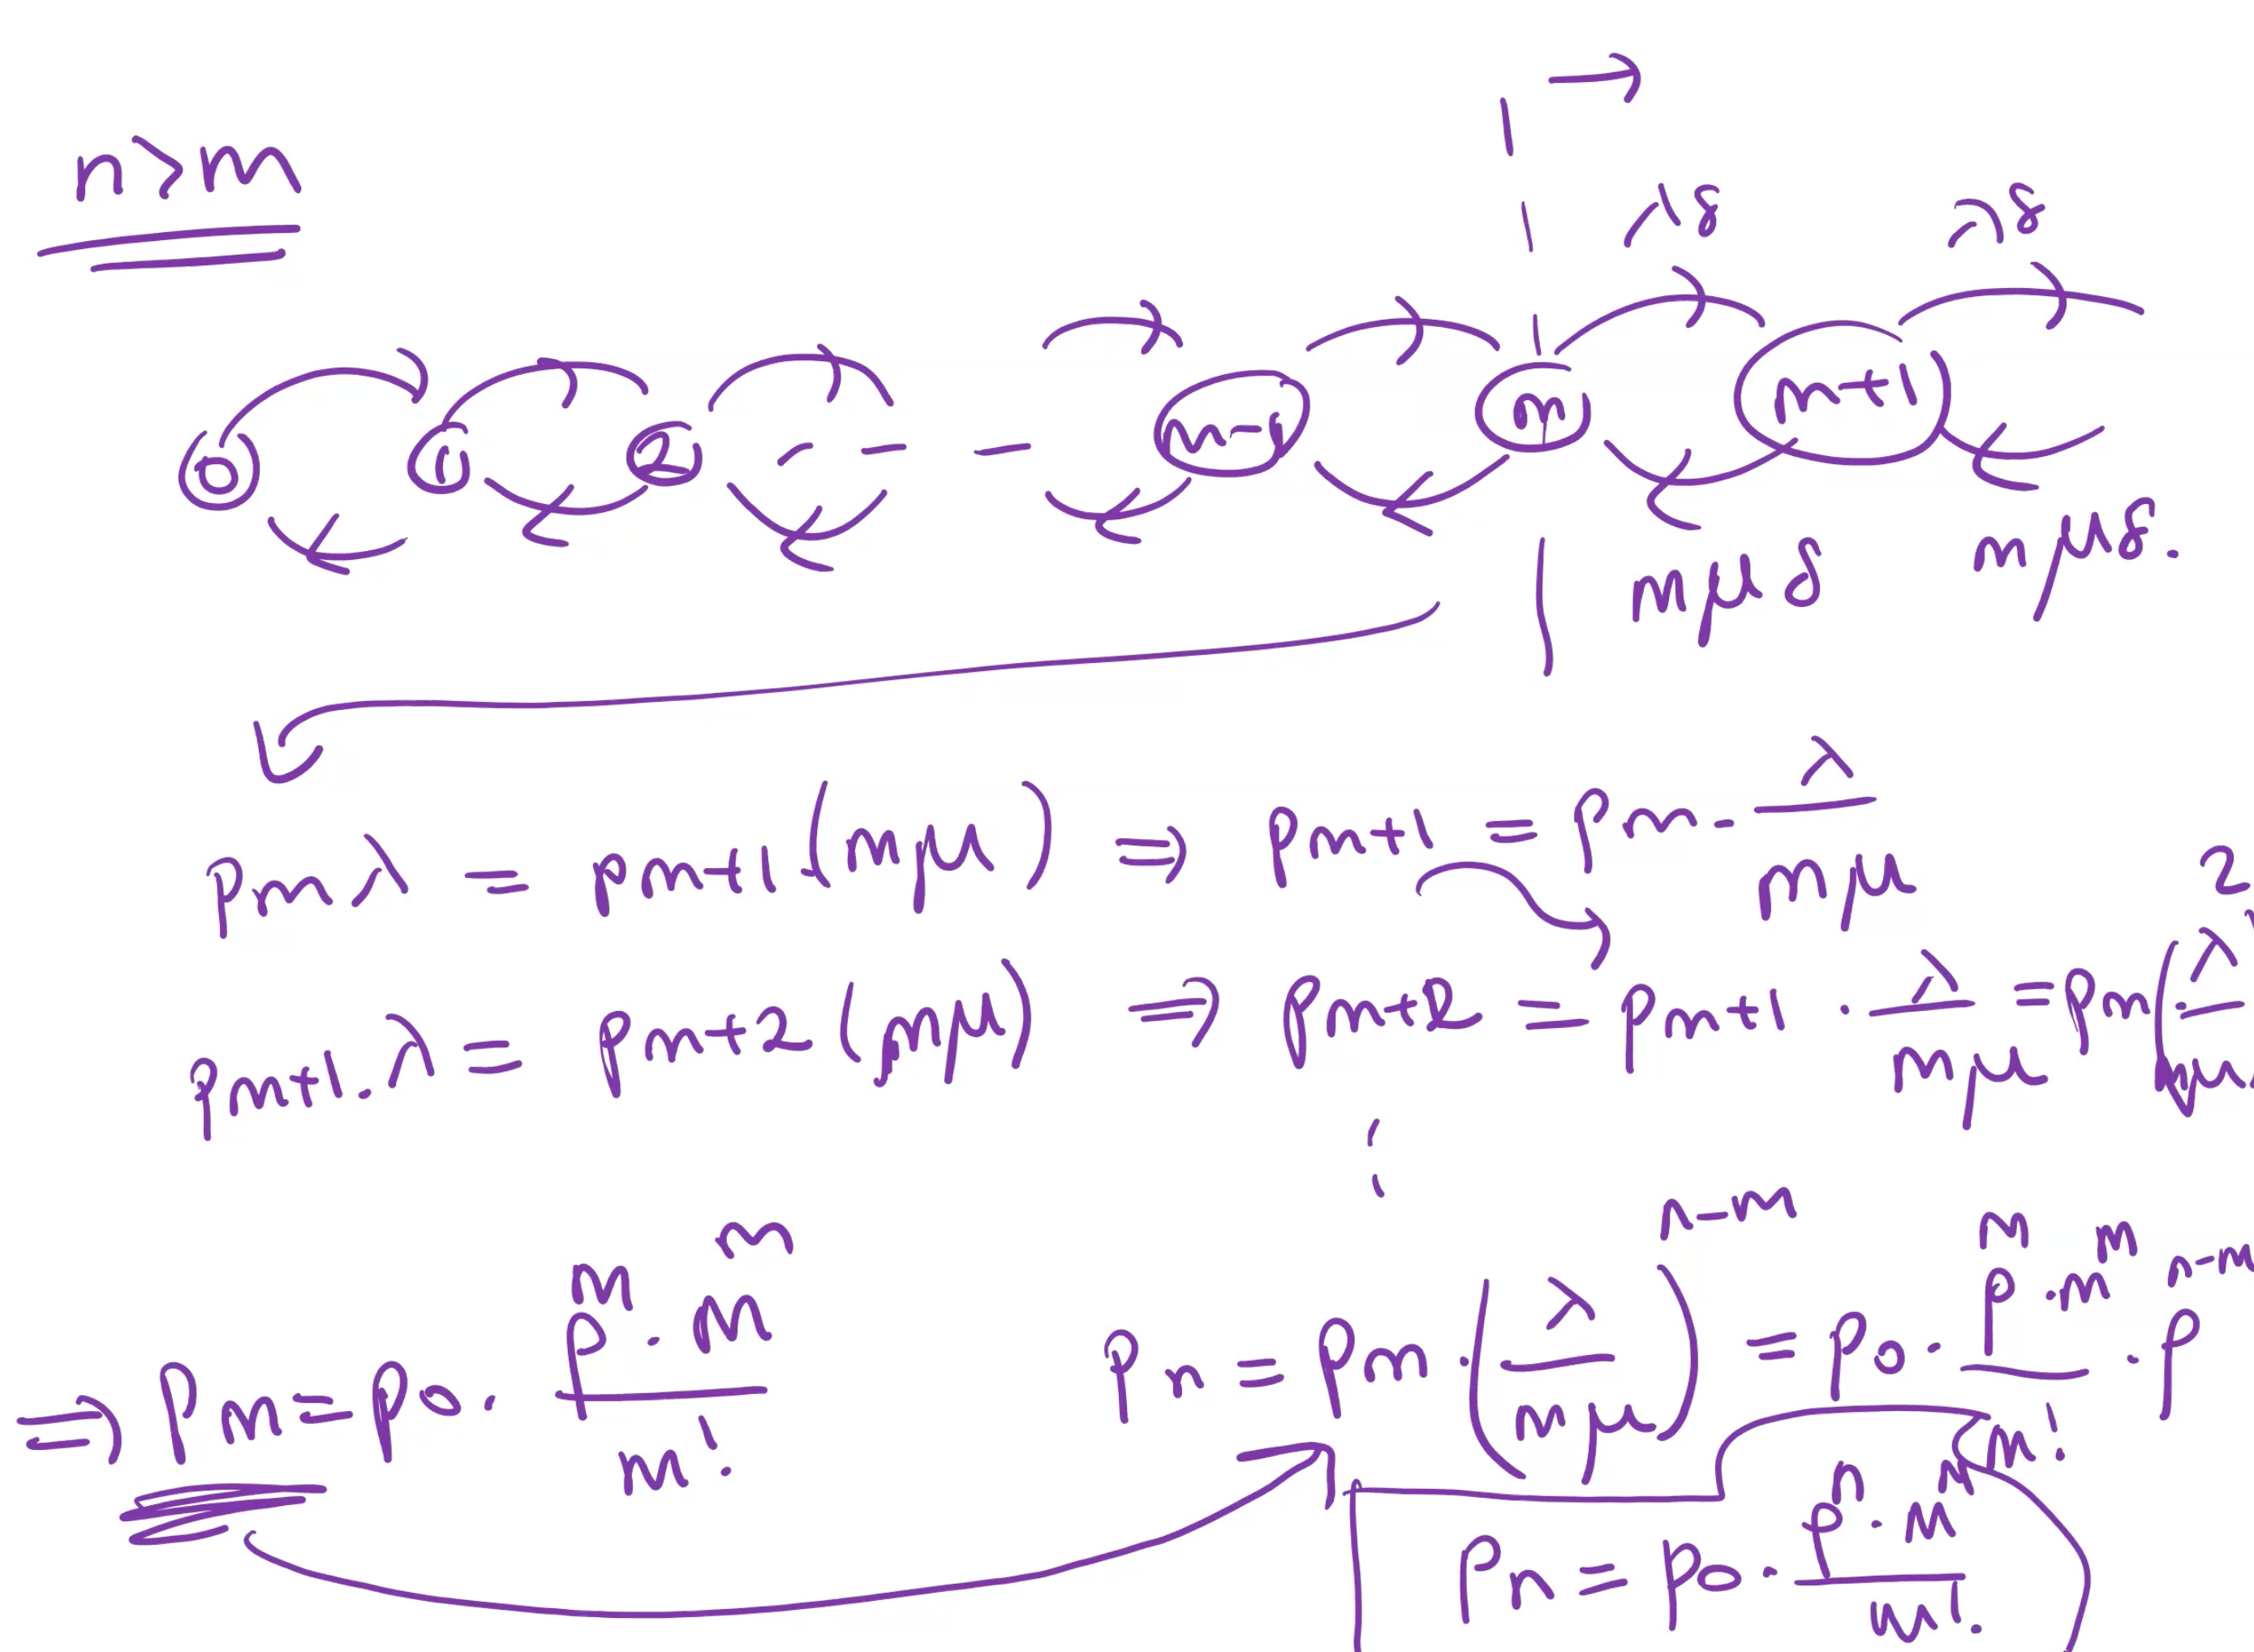 n>m
λδ λδ
0 1 2 - - - m-1 m m+1
mμδ mμδ.
pm λ = pm+1.(mμ) ⇒ pm+1 = pm · λ/mμ
pm+1.λ = pm+2(mμ) ⇒ pm+2 = pm+1 · λ/mμ = pm(λ/mμ)²
⇒ pm = p0 · ρ^m · m^m / m!
pn = pm · (λ/mμ)^n-m = p0 · ρ^m · m^m / m! · ρ^n-m
pn = p0 · ρ^n · m^m / m!